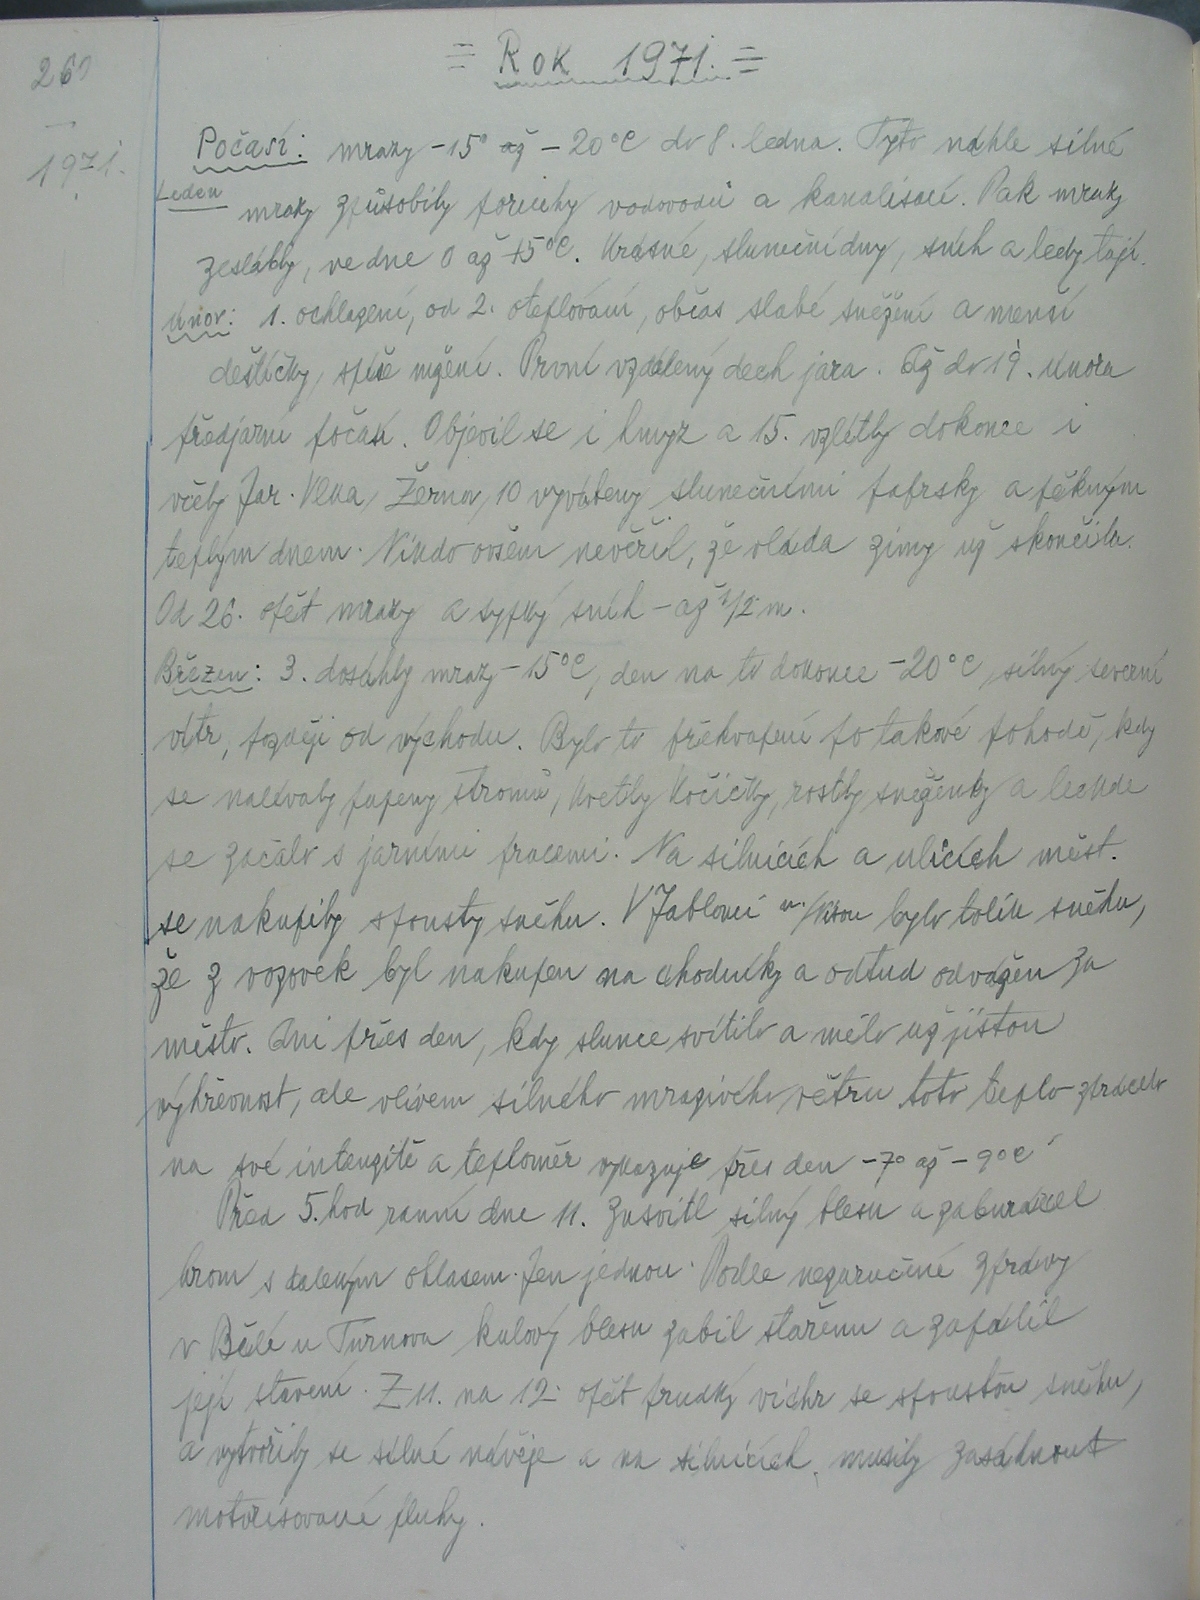 = Rok 1971. =
260
1971.
Počasí: mrazy -15° až -20°C do 8. ledna. Tyto náhle silné
Leden
mrazy způsobily poruchy vodovodů a kanalisací. Pak mrazy
zeslábly, ve dne 0 až +5°C. Krásné, sluneční dny, sníh a ledy tají.
Únor: 1. ochlazení, od 2. oteplování, občas slabé sněžení a menší
deštíčky, spíše mžení. První vzdálený dech jara. Až do 19. února
předjarní počasí. Objevil se i hmyz a 15. vzlétly dokonce i
včely Jar. Vlka, Žernov, 10 vyvábeny slunečními paprsky a pěkným
teplým dnem. Nikdo ovšem nevěřil, že vláda zimy už skončila.
Od 26. opět mrazy a sypký sníh - až 1/2 m.
Březen: 3. dosáhly mrazy -15°C, den na to dokonce -20°C, silný severní
vítr, později od východu. Bylo to překvapení po takové pohodě, kdy
se nalévaly pupeny stromů, kvetly kočičky, rostly sněženky a leckde
se začalo s jarními pracemi. Na silnicích a ulicích měst.
se nakupily spousty sněhu. V Jablonci n./Nisou bylo tolik sněhu,
že z vozovek byl nakupen na chodníky a odtud odvážen za
město. Ani přes den, kdy slunce svítilo a mělo už jistou
výhřevnost, ale vlivem silného mrazivého větru toto teplo ztrácelo
na své intenzitě a teploměr vykazuje přes den -7° až -9°C
Před 5. hod ranní dne 11. zasvitl silný blesk a zaburácel
hrom s dalekým ohlasem. Jen jednou. Podle nezaručené zprávy
v Bělé u Turnova kulový blesk zabil stařenu a zapálil
její stavení. Z 11. na 12. opět prudký vichr se spoustou sněhu,
a vytvořily se silné návěje a na silnicích musily zasáhnout
motorisované pluhy.